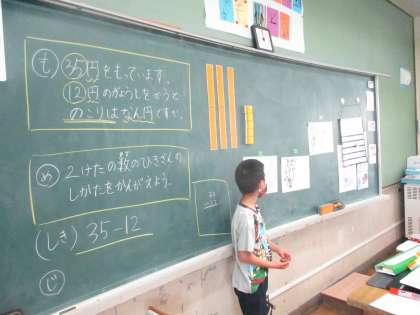 も 35円をもっています。
12円のがようしをかうと
のこりはなん円ですか。
め 2けたの数のひきざんの
しかたをかんがえよう。
(しき) 35-12
じ